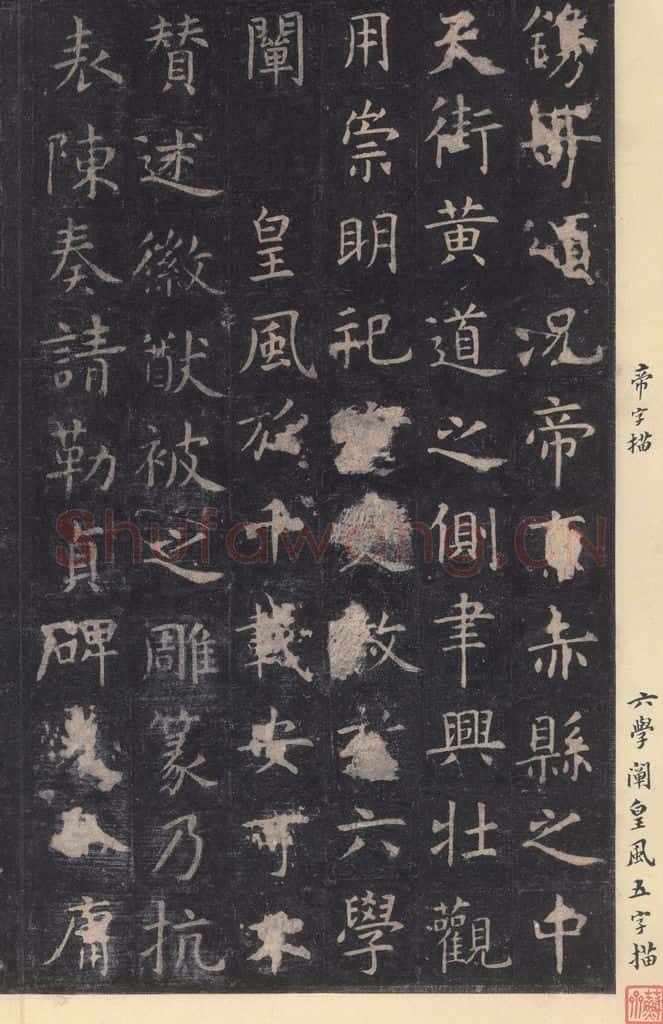 帝字描
六學闡皇風五字描
鎸頌况帝京赤縣之中
天街黄道之側聿興壯觀
用崇明祀教於六學
闡 皇風於千載安可不
賛述徽猷被之雕篆乃抗
表陳奏請勒貞碑庸
Shufawang.CN